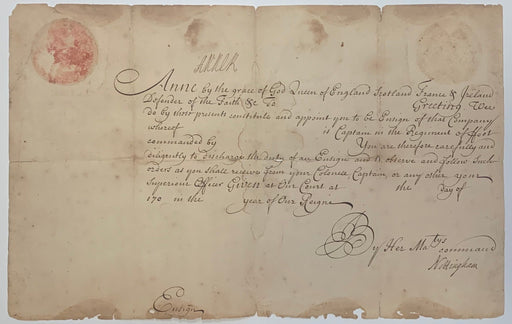 Anne R
Anne by the grace of God Queen of England Scotland France & Ireland
Defender of the Faith &c To Greeting Wee
do by these presents constitute and appoint you to be Ensign of that Company
whereof is Captain in the Regiment of Foot
commanded by You are therefore carefully and
diligently to discharge the duty of an Ensign and to observe and follow such
orders as you shall receive from your Colonel Captain, or any other your
Superiour Officer Given at Our Court at the day of
170 in the year of Our Reigne
By Her Ma.tys command
Nottingham
Ensign